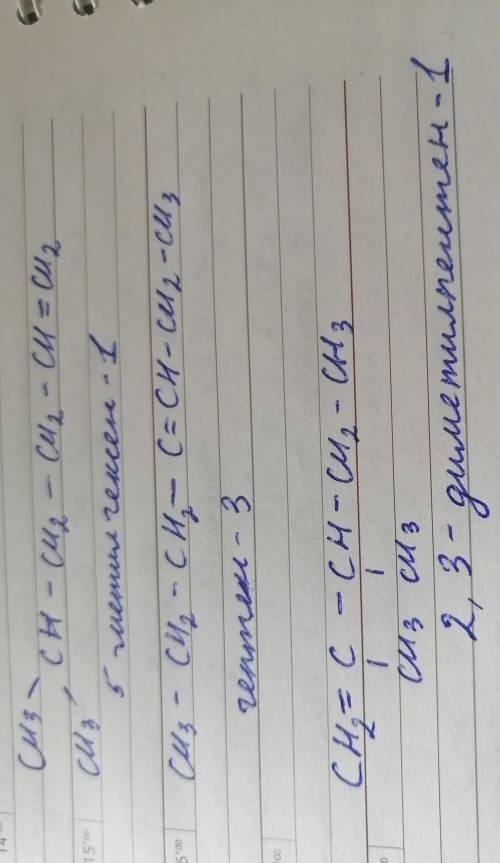 CH3
CH - CH2 - CH2 - CH = CH2
CH3
5 метил гексен - 1
CH3 - CH2 - CH2 - C = CH - CH2 - CH3
гептен - 3
CH2 = C - CH - CH2 - CH3
CH3 CH3
2, 3 - диметилпентен - 1
14
15'00